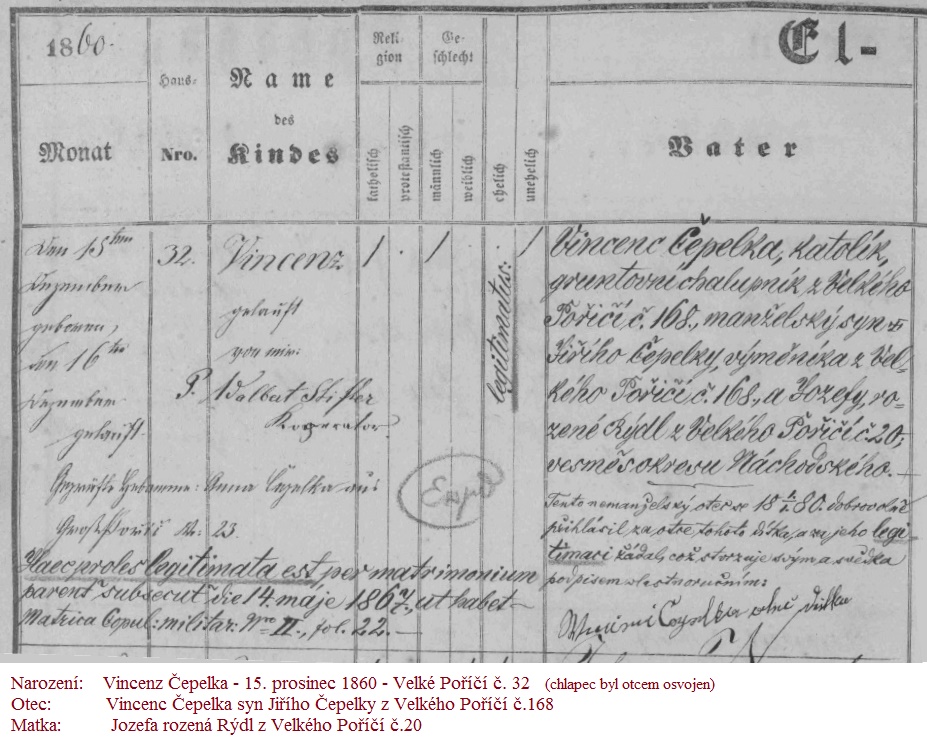 1860.
Monat
Haus-
Nro.
Name
des
Kindes
Reli-
gion
katholisch
protestantisch
Ge-
schlecht
männlich
weiblich
ehelich
unehelich
El-
Vater
Den 15ten
Dezember
geboren,
den 16ten
Dezember
getauft.
32.
Vincenz
getauft
von mir:
P. Adalbert Stifter
Kooperator
/ / /
legitimatus:
Geprüfte Hebamme: Anna Čepelka aus
Großpořič Nr. 23.
Haec proles legitimata est per matrimonium
parent subsecut die 14. maje 1867, ut habet
Matrica Copul: militar: Nro II., fol. 22.—
Vincenc Čepelka, katolík,
gruntovní chalupník z Velkého
Poříčí č. 168., manželský syn †
Jiřího Čepelky, výměníka z Vel-
kého Poříčí č. 168., a Jozefy, ro-
zené Rýdl z Velkého Poříčí č. 20;
vesměs okresu Náchodského.
Tento nemanželský otec se 18 80. dobrovolně
přihlásil za otce tohoto dítka, a za jeho legi-
timaci žádal, což stvrzuje svým a svědka
podpisem vlastnoručním:
Čepelka otec dítka
Narození: Vincenz Čepelka - 15. prosinec 1860 - Velké Poříčí č. 32 (chlapec byl otcem osvojen)
Otec: Vincenc Čepelka syn Jiřího Čepelky z Velkého Poříčí č.168
Matka: Jozefa rozená Rýdl z Velkého Poříčí č.20